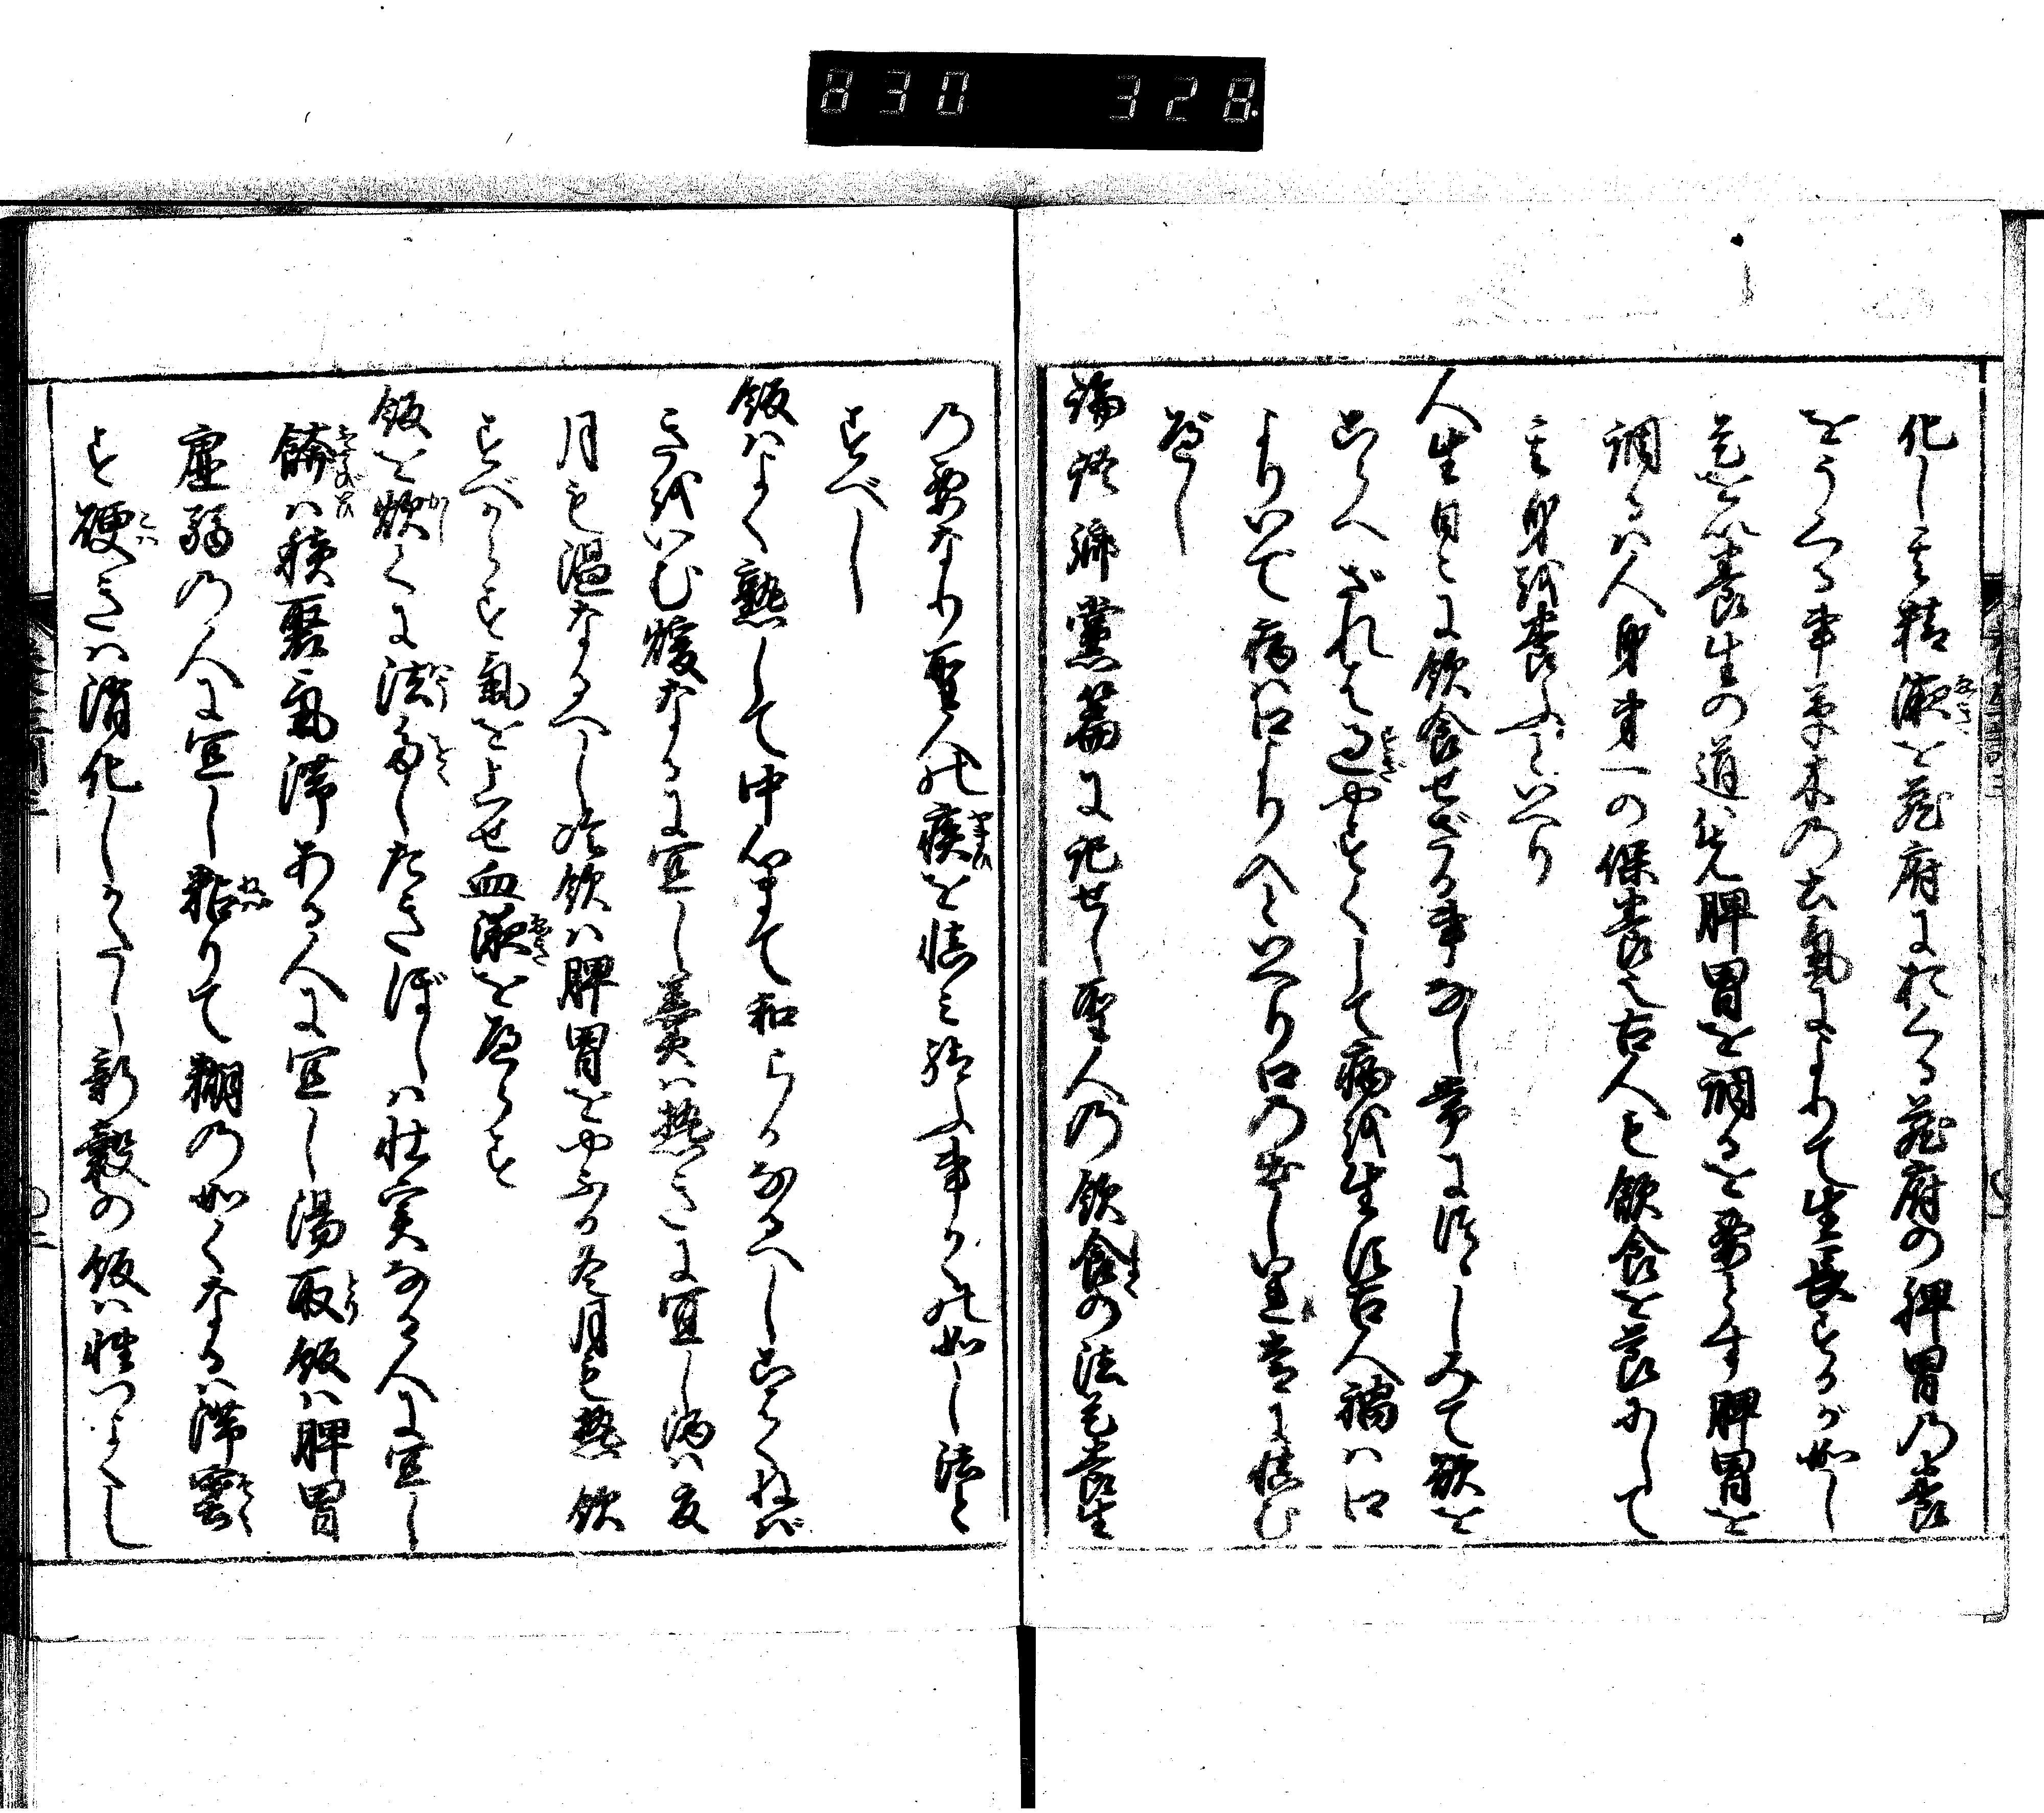 830 328
化し其精液を臓府におくる臓府の脾胃の養
をうくる事草木の土氣によりて生長するが如し
是を以養生の道は先脾胃を調るを要とす脾胃を
調るハ人身第一の保養也古人も飲食を節にして
其身を養ふといへり
人生日々に飲食せざる事なし常につゝしみて欲を
こらへざれは過やすくして病を生ず古人禍ハ口
よりいで病ハ口より入といへり口の出し入常に慎む
べし
論語郷黨篇に記せし聖人の飲食の法是養生
の要なり聖人の疾を慎み給ふ事かくの如し法と
すべし
飯ハよく熟して中心まて和らかなるへしこはくねば
きをいむ煖なるに宜し羹ハ熱きに宜し酒ハ夏
月も温なるへし冷飲ハ脾胃をやぶる冬月も熱飲
すべからす氣を上せ血液をへらす
飯を炊くに法多したきぼしハ壮実なる人に宜し
饙ハ積聚氣滞ある人に宜し湯取飯ハ脾胃
虚弱の人に宜し粘りて糊の如くなるハ滞塞
す硬きハ消化しかたし新穀の飯ハ性つよくし